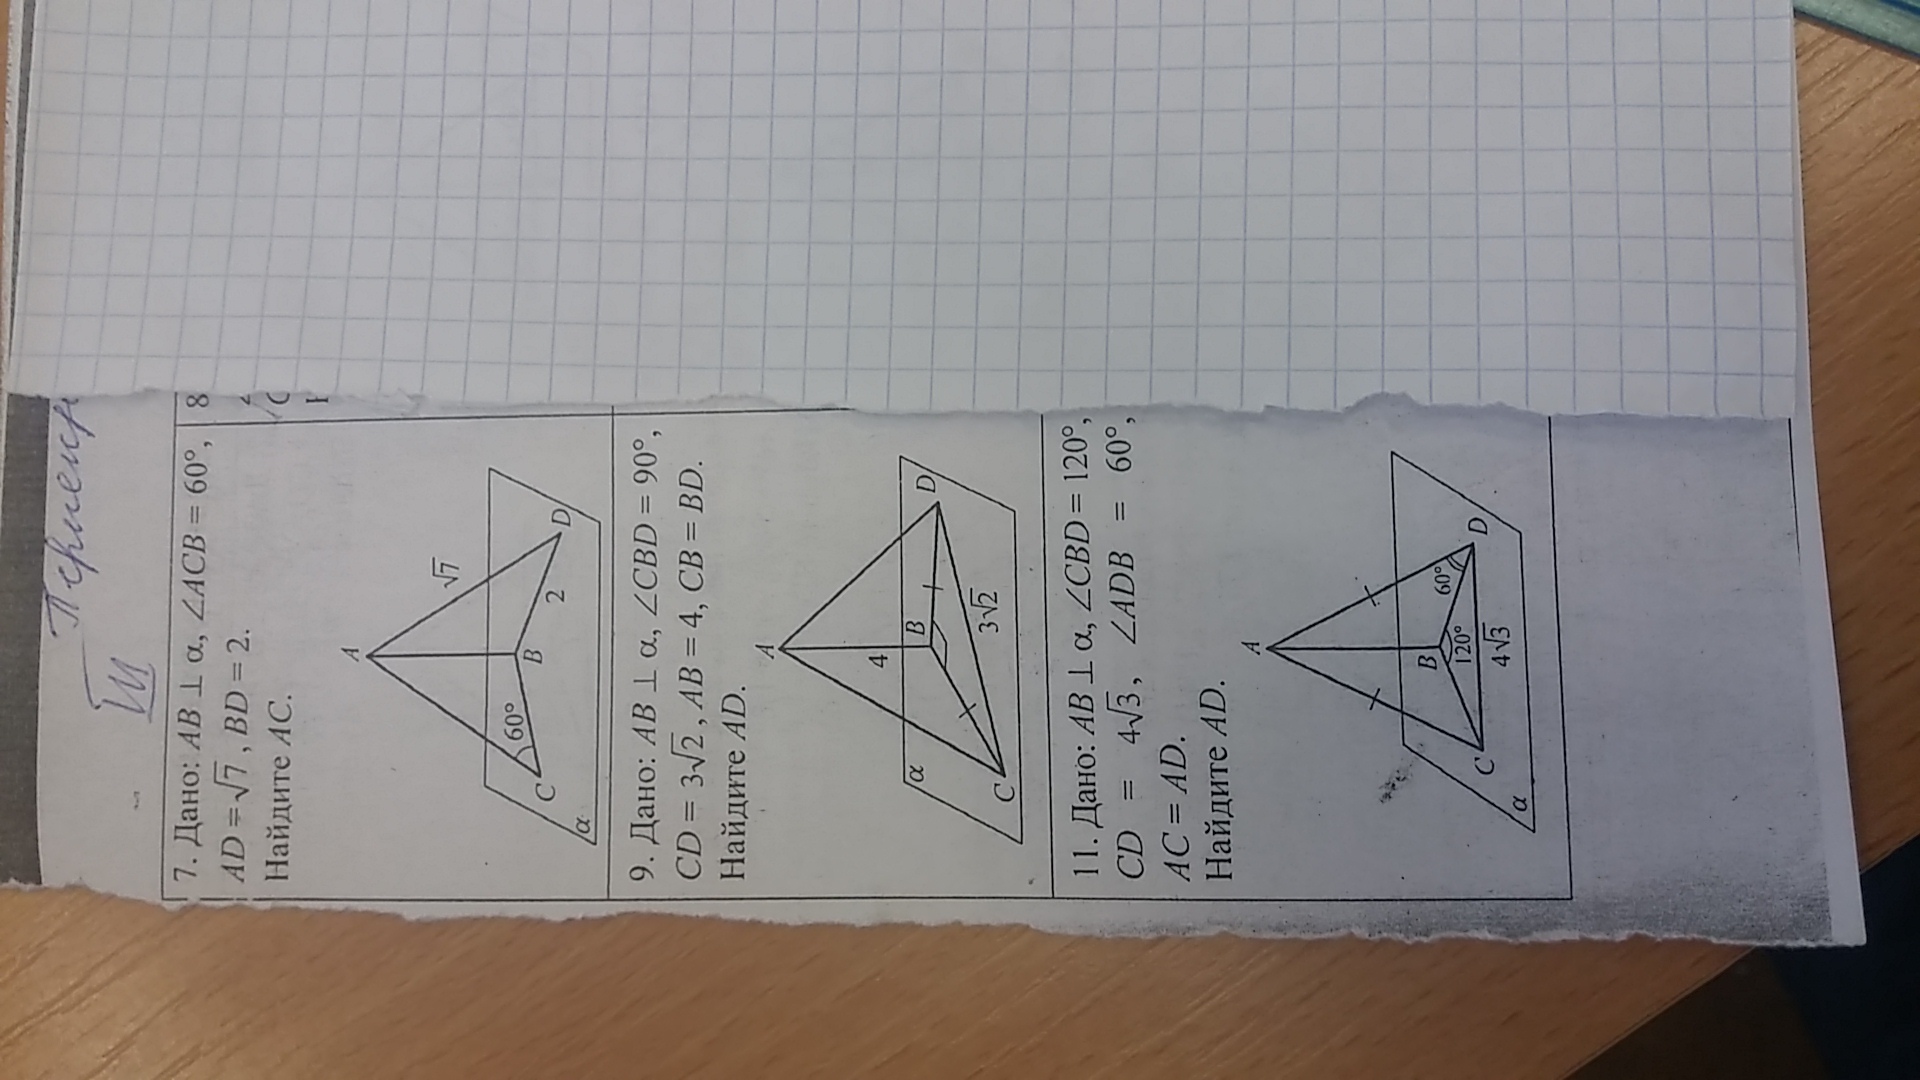 III
7. Дано: AB ⊥ α, ∠ACB = 60°,
AD = √7, BD = 2.
Найдите AC.
A
√7
60°
C
B
2
D
α
8
9. Дано: AB ⊥ α, ∠CBD = 90°,
CD = 3√2, AB = 4, CB = BD.
Найдите AD.
A
4
B
D
α
C
3√2
11. Дано: AB ⊥ α, ∠CBD = 120°,
CD = 4√3, ∠ADB = 60°,
AC = AD.
Найдите AD.
A
B
60°
120°
D
C
4√3
α